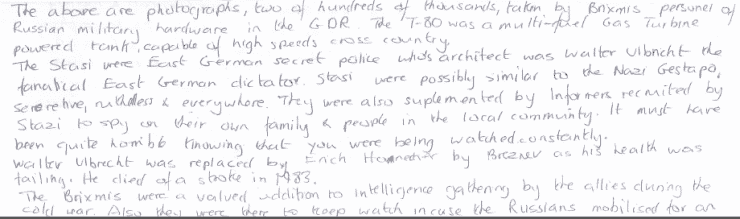 The above are photographs, two of hundreds of thousands, taken by Brixmis personel of
Russian military hardware in the GDR. The T-80 was a multi-fuel Gas Turbine
powered tank, capable of high speeds cross country.
The Stasi were East German secret police who's architect was Walter Ulbricht the
fanatical East German dictator. Stasi were possibly similar to the Nazi Gestapo,
secretive, ruthless & everywhere. They were also suplemented by Informers recruited by
Stazi to spy on their own family & people in the local community. It must have
been quite horrible knowing that you were being watched constantly.
Walter Ulbrecht was replaced by Erich by as his health was
failing. He died of a stroke in 1983.
The Brixmis were a valued addition to intelligence gathering by the allies during the
cold war. Also they were there to keep watch incase the Russians mobilised for an